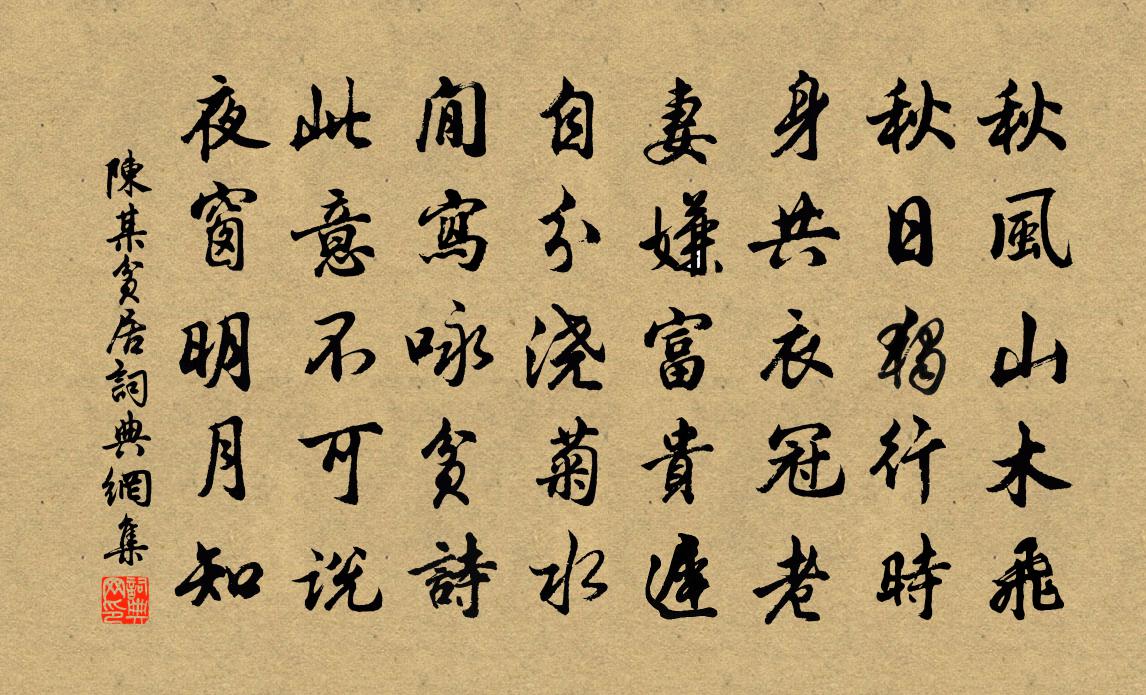 秋風山木飛
秋日獨行時
身共衣冠老
妻嫌富貴遲
自分澆菊水
閒寫咏貧詩
此意不可説
夜窗明月知
陳某貧居詞典網集
詞典网印